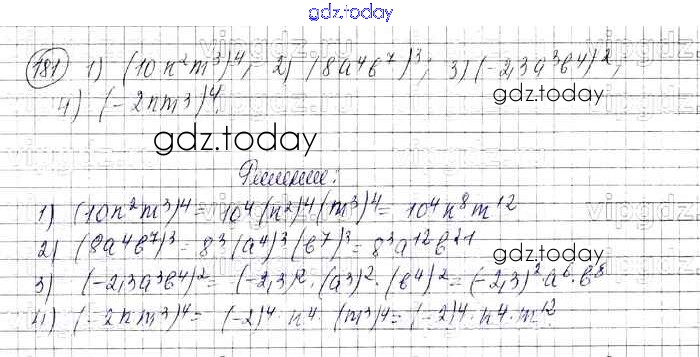 gdz.today
181 1) (10n²m³)⁴; 2) (8a⁴b⁷)³; 3) (-2,3a³b⁴)²;
4) (-2nm³)⁴.
gdz.today
gdz.today
Решение:
1) (10n²m³)⁴ = 10⁴(n²)⁴(m³)⁴ = 10⁴n⁸m¹²
2) (8a⁴b⁷)³ = 8³(a⁴)³(b⁷)³ = 8³a¹²b²¹
gdz.today
3) (-2,3a³b⁴)² = (-2,3)²·(a³)²·(b⁴)² = (-2,3)²a⁶·b⁸
4) (-2nm³)⁴ = (-2)⁴·n⁴·(m³)⁴ = (-2)⁴·n⁴·m¹²